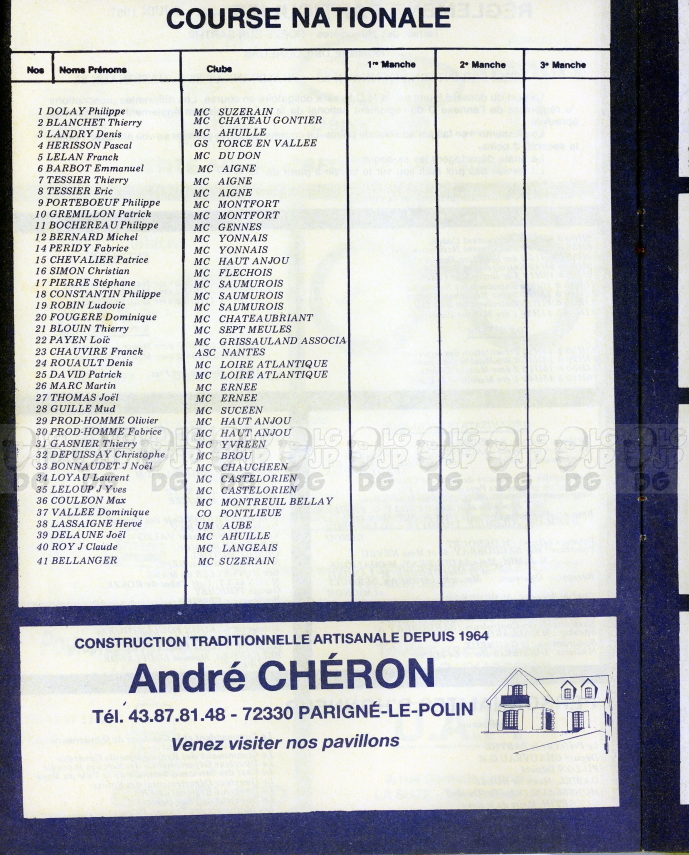 COURSE NATIONALE
Nos Noms Prénoms Clubs 1re Manche 2e Manche 3e Manche
1 DOLAY Philippe MC SUZERAIN
2 BLANCHET Thierry MC CHATEAU GONTIER
3 LANDRY Denis MC AHUILLE
4 HERISSON Pascal GS TORCE EN VALLEE
5 LELAN Franck MC DU DON
6 BARBOT Emmanuel MC AIGNE
7 TESSIER Thierry MC AIGNE
8 TESSIER Eric MC AIGNE
9 PORTEBOEUF Philippe MC MONTFORT
10 GREMILLON Patrick MC MONTFORT
11 BOCHEREAU Philippe MC GENNES
12 BERNARD Michel MC YONNAIS
14 PERIDY Fabrice MC YONNAIS
15 CHEVALIER Patrice MC HAUT ANJOU
16 SIMON Christian MC FLECHOIS
17 PIERRE Stéphane MC SAUMUROIS
18 CONSTANTIN Philippe MC SAUMUROIS
19 ROBIN Ludovic MC SAUMUROIS
20 FOUGERE Dominique MC CHATEAUBRIANT
21 BLOUIN Thierry MC SEPT MEULES
22 PAYEN Loïc MC GRISSAULAND ASSOCIA
23 CHAUVIRE Franck ASC NANTES
24 ROUAULT Denis MC LOIRE ATLANTIQUE
25 DAVID Patrick MC LOIRE ATLANTIQUE
26 MARC Martin MC ERNEE
27 THOMAS Joël MC ERNEE
28 GUILLE Mud MC SUCEEN
29 PROD-HOMME Olivier MC HAUT ANJOU
30 PROD-HOMME Fabrice MC HAUT ANJOU
31 GASNIER Thierry MC YVREEN
32 DEPUISSAY Christophe MC BROU
33 BONNAUDET J Noël MC CHAUCHEEN
34 LOYAU Laurent MC CASTELORIEN
35 LELOUP J Yves MC CASTELORIEN
36 COULEON Max MC MONTREUIL BELLAY
37 VALLEE Dominique CO PONTLIEUE
38 LASSAIGNE Hervé UM AUBE
39 DELAUNE Joël MC AHUILLE
40 ROY J Claude MC LANGEAIS
41 BELLANGER MC SUZERAIN
CONSTRUCTION TRADITIONNELLE ARTISANALE DEPUIS 1964
André CHÉRON
Tél. 43.87.81.48 - 72330 PARIGNÉ-LE-POLIN
Venez visiter nos pavillons